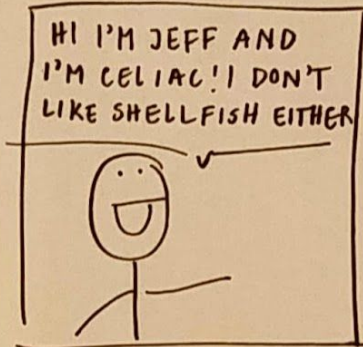 HI I'M JEFF AND
I'M CELIAC! I DON'T
LIKE SHELLFISH EITHER